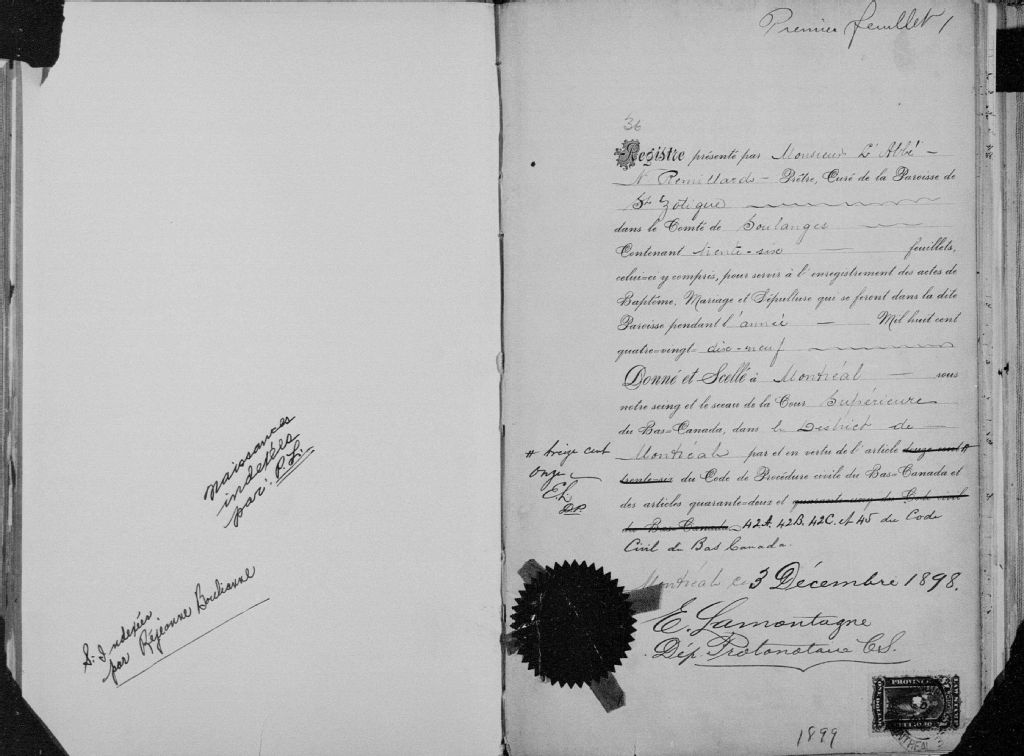 naissances
indexées
par: P. L.
S. Indexées
par Réjeanne Boulianne
Premier feuillet
36
Registre présenté par Monsieur L'Abbé
N Remillards Prêtre, Curé de la Paroisse de
St Zotique
dans le Comté de Soulanges
Contenant trente-six feuillets,
celui-ci y compris, pour servir à l'enregistrement des actes de
Baptême, Mariage et Sépulture qui se feront dans la dite
Paroisse pendant l'année Mil huit cent
quatre-vingt-dix-neuf
Donné et Scellé à Montréal sous
notre seing et le sceau de la Cour Supérieure
du Bas-Canada, dans le District de
Montréal par et en vertu de l'article douze cent #
trente-six du Code de Procédure civile du Bas-Canada et
des articles quarante-deux et quarante-cinq du Code civil
du Bas-Canada 42A. 42B. 42C. et 45 du Code
Civil du Bas Canada.
# treize cent
onze
E.L
D.P.
Montréal ce 3 Décembre 1898.
E. Lamontagne
Dép Protonotaire C.S.
PROVINCE
MONTREAL
1899